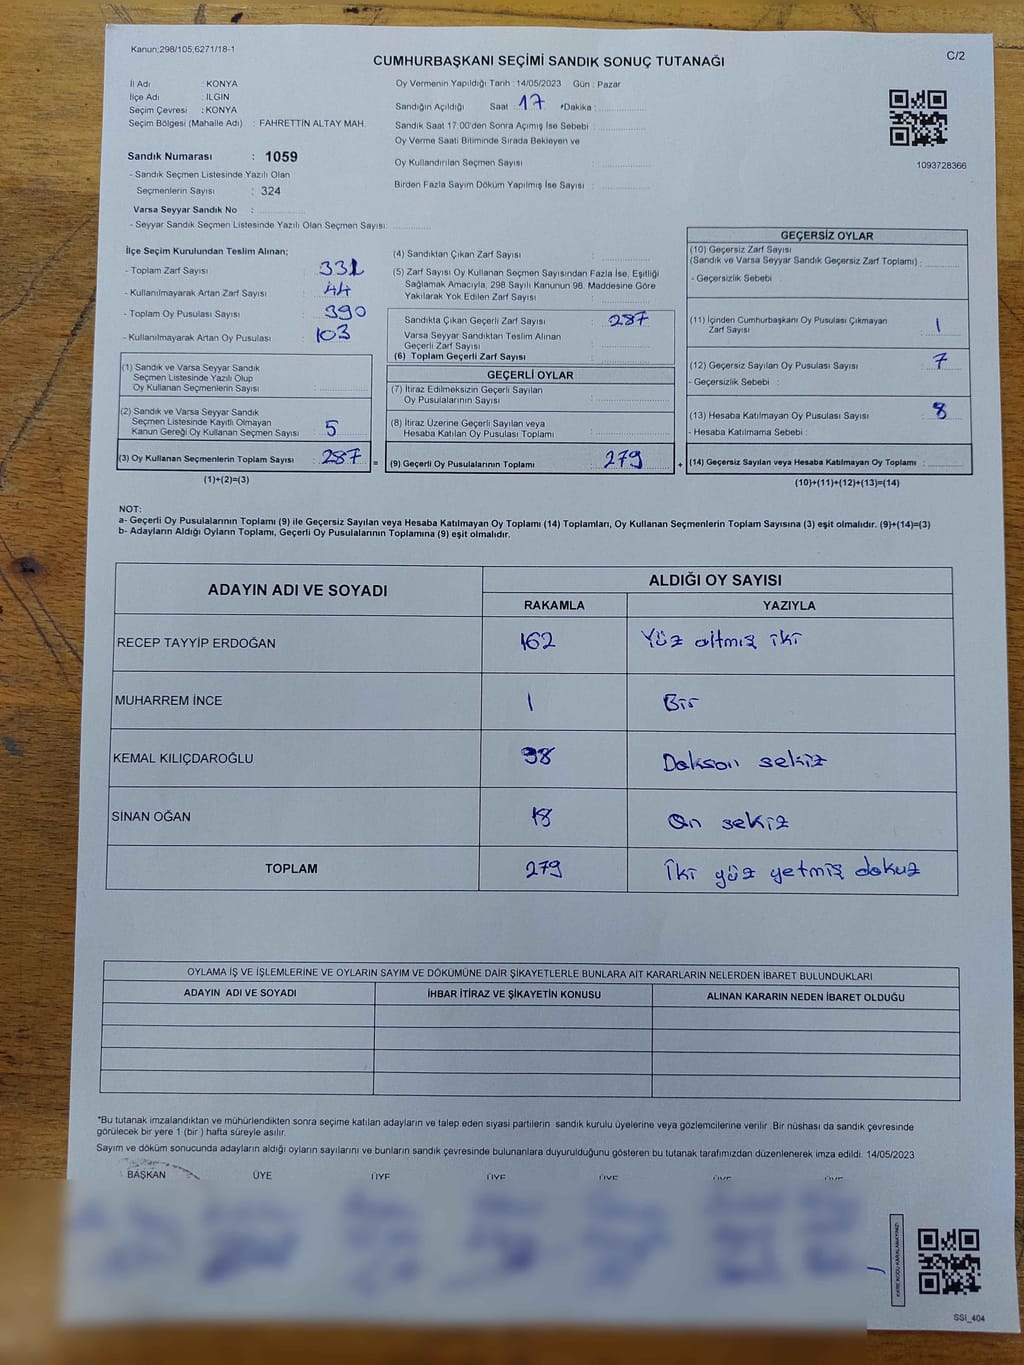 Kanun;298/105,6271/18-1
C/2
CUMHURBAŞKANI SEÇİMİ SANDIK SONUÇ TUTANAĞI
İl Adı : KONYA
İlçe Adı : ILGIN
Seçim Çevresi : KONYA
Seçim Bölgesi (Mahalle Adı) : FAHRETTİN ALTAY MAH.
Sandık Numarası : 1059
- Sandık Seçmen Listesinde Yazılı Olan
Seçmenlerin Sayısı : 324
Varsa Seyyar Sandık No :
- Seyyar Sandık Seçmen Listesinde Yazılı Olan Seçmen Sayısı:
Oy Vermenin Yapıldığı Tarih : 14/05/2023 Gün : Pazar
Sandığın Açıldığı Saat : 17 Dakika :
Sandık Saat 17:00'den Sonra Açımış İse Sebebi :
Oy Verme Saati Bitiminde Sırada Bekleyen ve
Oy Kullandırılan Seçmen Sayısı :
Birden Fazla Sayım Döküm Yapılmış İse Sayısı :
1093728366
İlçe Seçim Kurulundan Teslim Alınan;
- Toplam Zarf Sayısı : 331
- Kullanılmayarak Artan Zarf Sayısı : 44
- Toplam Oy Pusulası Sayısı : 390
- Kullanılmayarak Artan Oy Pusulası : 103
(1) Sandık ve Varsa Seyyar Sandık
Seçmen Listesinde Yazılı Olup
Oy Kullanan Seçmenlerin Sayısı :
(2) Sandık ve Varsa Seyyar Sandık
Seçmen Listesinde Kayıtlı Olmayan
Kanun Gereği Oy Kullanan Seçmen Sayısı : 5
(3) Oy Kullanan Seçmenlerin Toplam Sayısı : 287 =
(1)+(2)=(3)
(4) Sandıktan Çıkan Zarf Sayısı :
(5) Zarf Sayısı Oy Kullanan Seçmen Sayısından Fazla İse, Eşitliği
Sağlamak Amacıyla, 298 Sayılı Kanunun 98. Maddesine Göre
Yakılarak Yok Edilen Zarf Sayısı :
Sandıkta Çıkan Geçerli Zarf Sayısı : 287
Varsa Seyyar Sandıktan Teslim Alınan
Geçerli Zarf Sayısı :
(6) Toplam Geçerli Zarf Sayısı :
GEÇERLİ OYLAR
(7) İtiraz Edilmeksizin Geçerli Sayılan
Oy Pusulalarının Sayısı :
(8) İtiraz Üzerine Geçerli Sayılan veya
Hesaba Katılan Oy Pusulası Toplamı :
(9) Geçerli Oy Pusulalarının Toplamı : 279 +
GEÇERSİZ OYLAR
(10) Geçersiz Zarf Sayısı
(Sandık ve Varsa Seyyar Sandık Geçersiz Zarf Toplamı) :
- Geçersizlik Sebebi :
(11) İçinden Cumhurbaşkanı Oy Pusulası Çıkmayan
Zarf Sayısı : 1
(12) Geçersiz Sayılan Oy Pusulası Sayısı : 7
- Geçersizlik Sebebi :
(13) Hesaba Katılmayan Oy Pusulası Sayısı : 8
- Hesaba Katılmama Sebebi :
(14) Geçersiz Sayılan veya Hesaba Katılmayan Oy Toplamı :
(10)+(11)+(12)+(13)=(14)
NOT:
a- Geçerli Oy Pusulalarının Toplamı (9) ile Geçersiz Sayılan veya Hesaba Katılmayan Oy Toplamı (14) Toplamları, Oy Kullanan Seçmenlerin Toplam Sayısına (3) eşit olmalıdır. (9)+(14)=(3)
b- Adayların Aldığı Oyların Toplamı, Geçerli Oy Pusulalarının Toplamına (9) eşit olmalıdır.
ADAYIN ADI VE SOYADI ALDIĞI OY SAYISI
RAKAMLA YAZIYLA
RECEP TAYYİP ERDOĞAN 162 Yüz altmış iki
MUHARREM İNCE 1 Bir
KEMAL KILIÇDAROĞLU 98 Doksan sekiz
SİNAN OĞAN 18 On sekiz
TOPLAM 279 İki yüz yetmiş dokuz
OYLAMA İŞ VE İŞLEMLERİNE VE OYLARIN SAYIM VE DÖKÜMÜNE DAİR ŞİKAYETLERLE BUNLARA AİT KARARLARIN NELERDEN İBARET BULUNDUKLARI
ADAYIN ADI VE SOYADI İHBAR İTİRAZ VE ŞİKAYETİN KONUSU ALINAN KARARIN NEDEN İBARET OLDUĞU
*Bu tutanak imzalandıktan ve mühürlendikten sonra seçime katılan adayların ve talep eden siyasi partilerin sandık kurulu üyelerine veya gözlemcilerine verilir. Bir nüshası da sandık çevresinde
görülecek bir yere 1 (bir ) hafta süreyle asılır.
Sayım ve döküm sonucunda adayların aldığı oyların sayılarını ve bunların sandık çevresinde bulunanlara duyurulduğunu gösteren bu tutanak tarafımızdan düzenlenerek imza edildi. 14/05/2023
BAŞKAN ÜYE ÜYE ÜYE ÜYE ÜYE ÜYE
KARE KODU KARALAMAYINIZ!
SSI_404